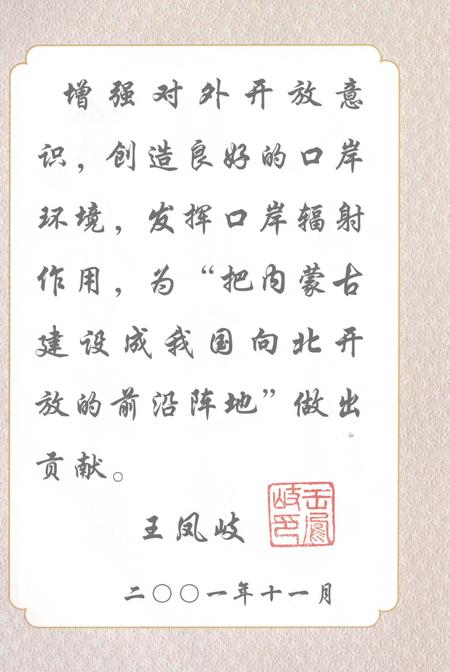 增强对外开放意
识，创造良好的口岸
环境，发挥口岸辐射
作用，为“把内蒙古
建设成我国向北开
放的前沿阵地”做出
贡献。
王凤岐
王鳳岐印
二〇〇一年十一月